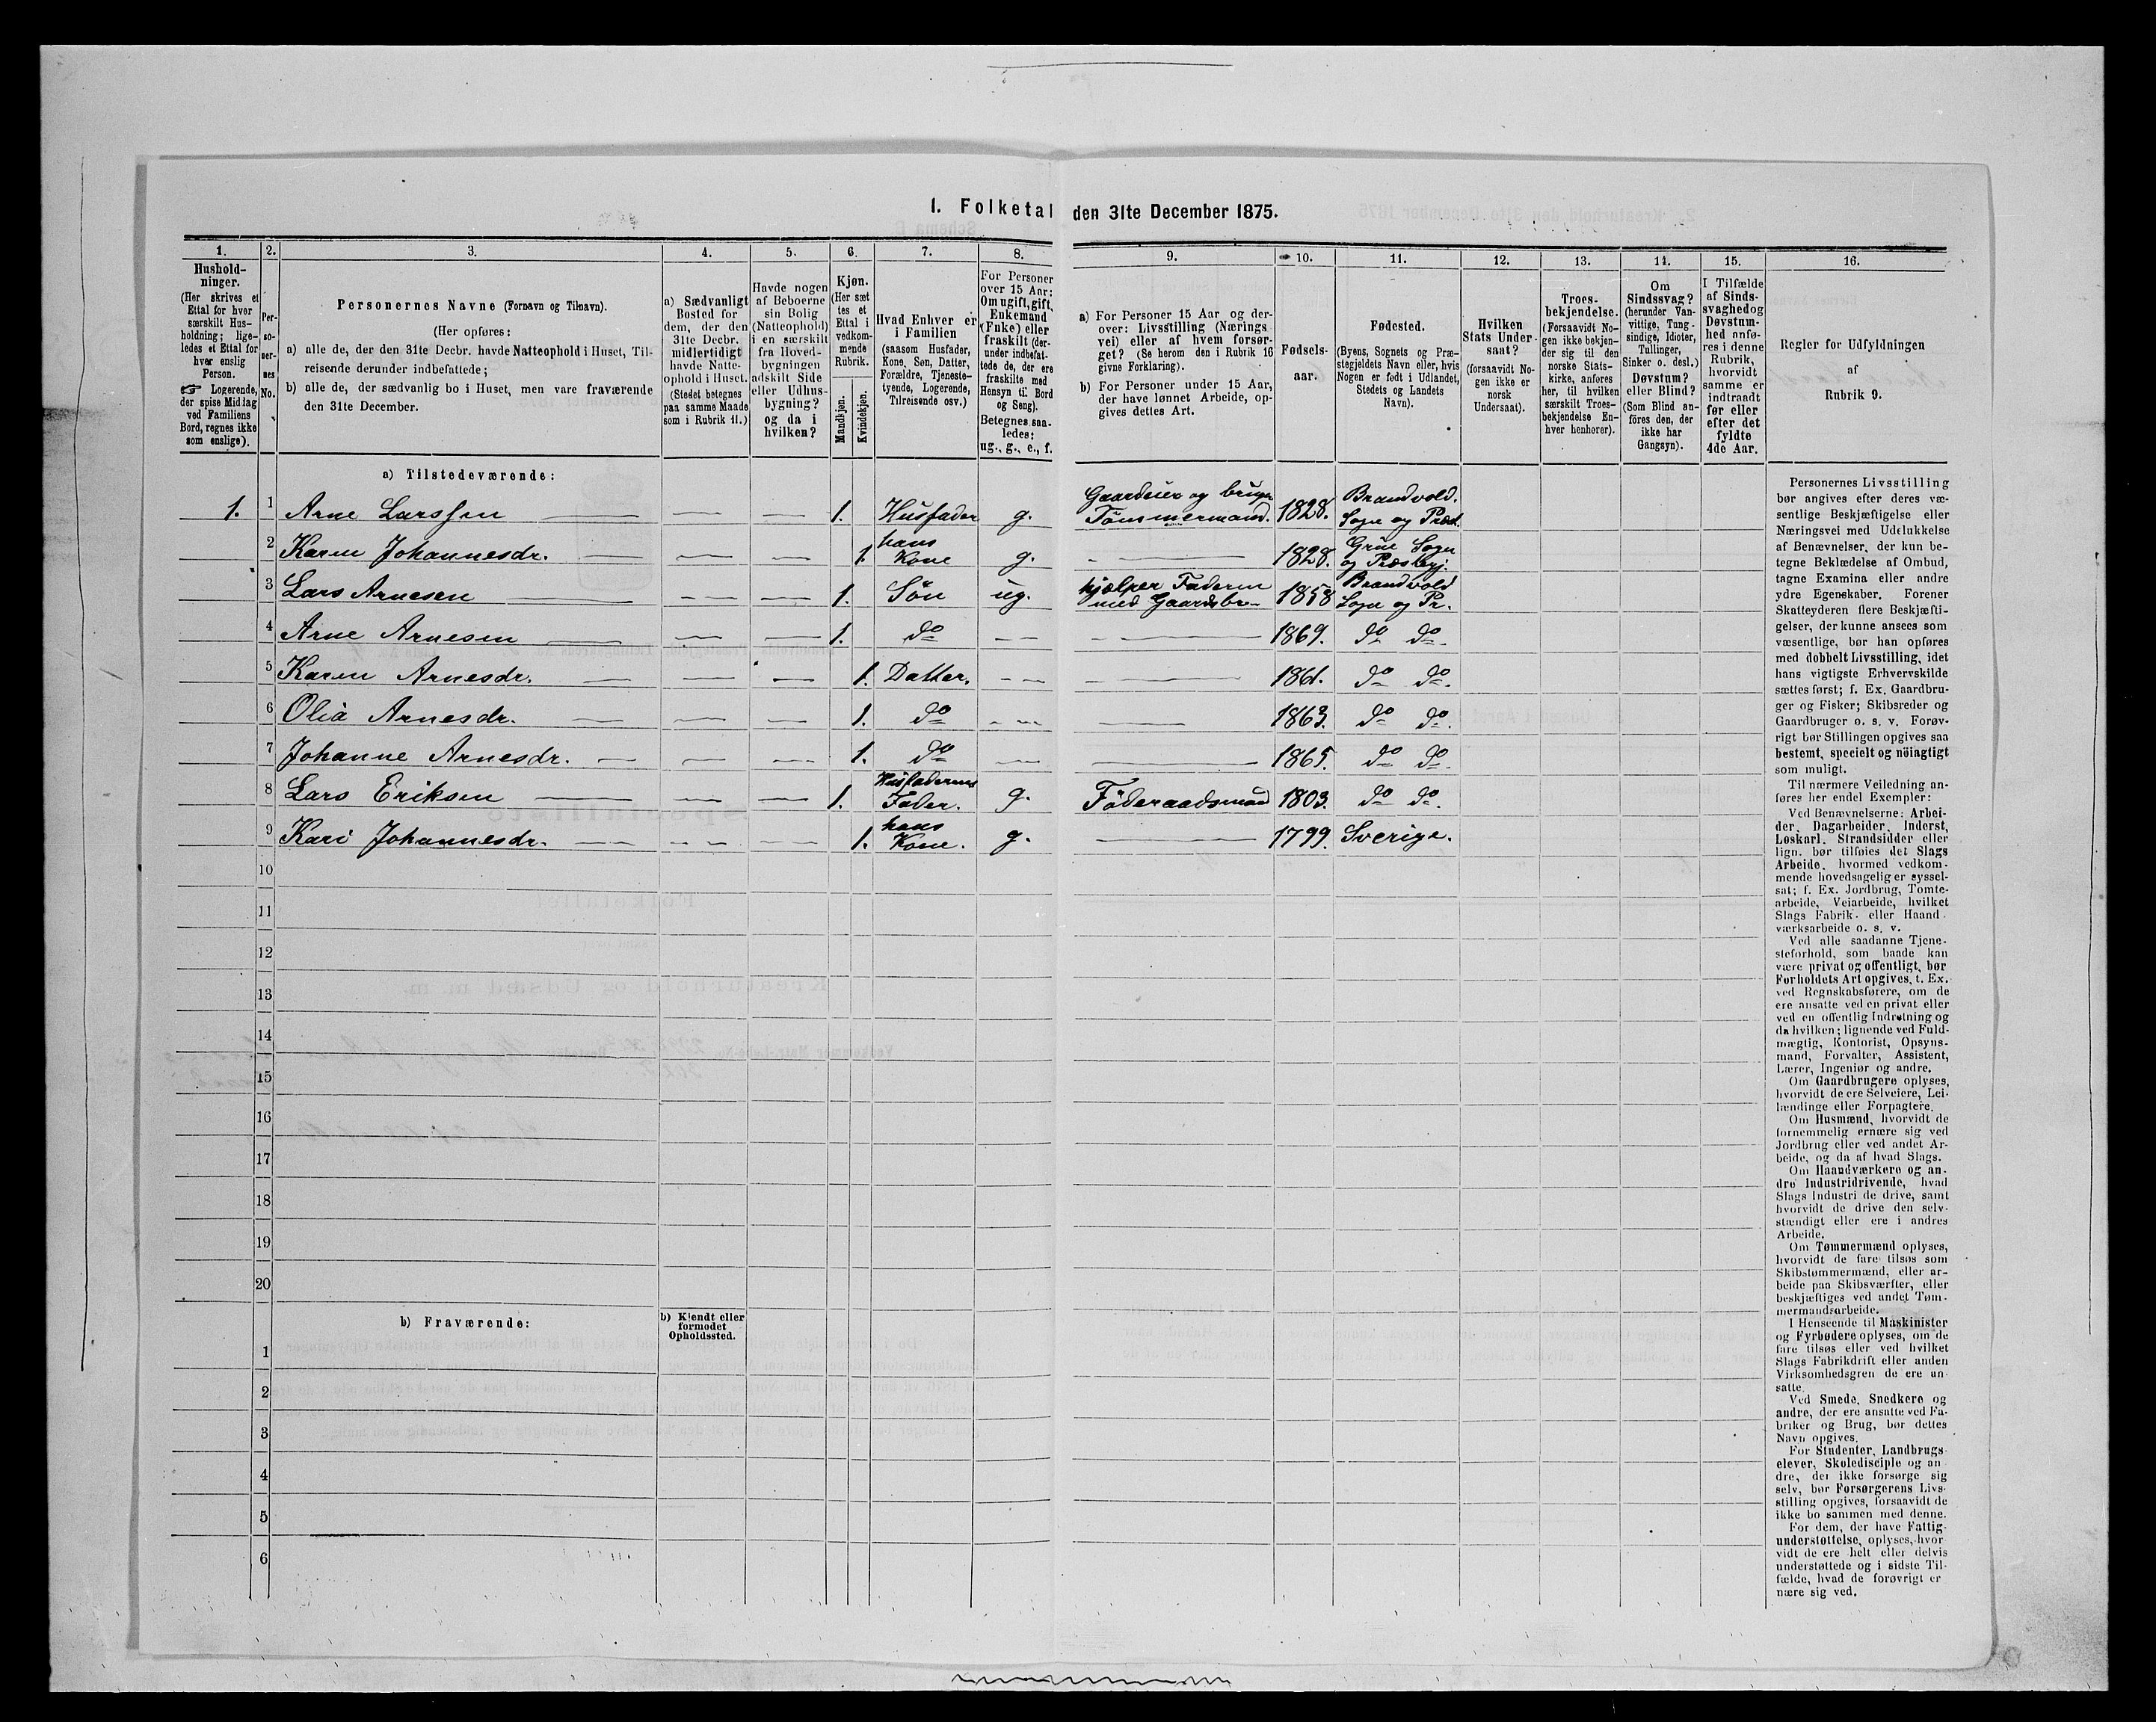 1. Folketal den 31te December 1875.
1.
Hushold-
ninger.
(Her skrives et
Ettal for hver
særskilt Hus-
holdning; lige-
ledes et Ettal for
hver enslig
Person.
☞ Logerende,
der spise Middag
ved Familiens
Bord, regnes ikke
som enslige).
2.
Per-
so-
ner-
nes
No.
3.
Personernes Navne (Fornavn og Tilnavn).
(Her opføres:
a) alle de, der den 31te Decbr. havde Natteophold i Huset, Til-
reisende derunder indbefattede;
b) alle de, der sædvanlig bo i Huset, men vare fraværende
den 31te December.
4.
a) Sædvanligt
Bosted for
dem, der den
31te Decbr.
midlertidigt
havde Natte-
ophold i Huset.
(Stedet betegnes
paa samme Maade
som i Rubrik 11.)
5.
Havde nogen
af Beboerne
sin Bolig
(Natteophold)
i en særskilt
fra Hoved-
bygningen
adskilt Side
eller Udhus-
bygning?
og da i
hvilken?
6.
Kjøn.
(Her sæt
tes et
Ettal i
vedkom-
mende
Rubrik.
Mandkjøn.
Kvindekjøn.
7.
Hvad Enhver er
i Familien
(saasom Husfader,
Kone, Søn, Datter,
Forældre, Tjeneste-
tyende, Logerende,
Tilreisende osv.)
8.
For Personer
over 15 Aar:
Om ugift, gift,
Enkemand
(Enke) eller
fraskilt (der-
under indbefat-
tede de, der ere
fraskilte med
Hensyn til Bord
og Seng).
Betegnes saa-
ledes:
ug., g., e., f.
9.
a) For Personer 15 Aar og der-
over: Livsstilling (Nærings
vei) eller af hvem forsør-
get? (Se herom den i Rubrik 16
givne Forklaring).
b) For Personer under 15 Aar,
der have lønnet Arbeide, op-
gives dettes Art.
10.
Fødsels-
aar.
11.
Fødested.
(Byens, Sognets og Præ-
stegjeldets Navn eller, hvis
Nogen er født i Udlandet,
Stedets og Landets
Navn).
12.
Hvilken
Stats Under-
saat?
(forsaavidt No-
gen ikke er
norsk
Undersaat).
13.
Troes-
bekjendelse.
(Forsaavidt No-
gen ikke bekjen-
der sig til den
norske Stats-
kirke, anføres
her, til hvilken
særskilt Troes-
bekjendelse En-
hver henhører).
14.
Om
Sindssvag?
(herunder Van-
vittige, Tung-
sindige, Idioter,
Tullinger,
Sinker o. desl.)
Døvstum?
eller Blind?
(Som Blind an-
føres den, der
ikke har
Gangsyn).
15.
I Tilfælde
af Sinds-
svaghed og
Døvstum-
hed anfø-
res i denne
Rubrik,
hvorvidt
samme er
indtraadt
før eller
efter det
fyldte
4de Aar.
16.
Regler for Udfyldningen
af
Rubrik 9.
a) Tilstedeværende:
1. 1 Arne Larssen 1. Husfader g. Gaardeier og bruger Tömmermand. 1828. Brandvold. Sogn og Præst.
2 Karen Johannesdr. 1. hans Kone g. 1828. Grue Sogn og Præstegj.
3 Lars Arnesen 1. Sön ug. hjælper Faderen med Gaardsbr. 1858 Brandvold Sogn og Pr.
4 Arne Arnesen 1. do 1869. do do.
5 Karen Arnesdr. 1. Datter. 1861. do do.
6 Olia Arnesdr. 1. do 1863. do do.
7 Johanne Arnesdr. 1. do 1865. do do.
8 Lars Eriksen 1. Husfaderens Fader. g. Föderaadsmand 1803. do do.
9 Kari Johannesdr. 1. hans Kone. g. 1799. Sverige.
10
11
12
13
14
15
16
17
18
19
20
b) Fraværende:
b) Kjendt eller
formodet
Opholdssted.
1
2
3
4
5
6
Personernes Livsstilling
bør angives efter deres væ-
sentlige Beskjæftigelse eller
Næringsvei med Udelukkelse
af Benævnelser, der kun be-
tegne Beklædelse af Ombud,
tagne Examina eller andre
ydre Egenskaber. Forener
Skatteyderen flere Beskjæfti-
gelser, der kunne ansees som
væsentlige, bør han opføres
med dobbelt Livsstilling, idet
hans vigtigste Erhvervskilde
sættes først; f. Ex. Gaardbru-
ger og Fisker; Skibsreder og
Gaardbruger o. s. v. Forøv-
rigt bør Stillingen opgives saa
bestemt, specielt og nöiagtigt
som muligt.
Til nærmere Veiledning an-
føres her endel Exempler:
Ved Benævnelserne: Arbei-
der, Dagarbeider, Inderst,
Løskarl, Strandsidder eller
lign. bør tilføies det Slags
Arbeide, hvormed vedkom-
mende hovedsagelig er syssel-
sat; f. Ex. Jordbrug, Tomte-
arbeide, Veiarbeide, hvilket
Slags Fabrik- eller Haand-
værksarbeide o. s. v.
Ved alle saadanne Tjene-
steforhold, som baade kan
være privat og offentligt, bør
Forholdets Art opgives, t. Ex.
ved Regnskabsførere, om de
ere ansatte ved en privat eller
ved en offentlig Indretning og
da hvilken; lignende ved Fuld-
mægtig, Kontorist, Opsyns-
mand, Forvalter, Assistent,
Lærer, Ingeniør og andre.
Om Gaardbrugere oplyses,
hvorvidt de ere Selveiere, Lei-
lændinge eller Forpagtere.
Om Husmænd, hvorvidt de
fornemmelig ernære sig ved
Jordbrug eller ved andet Ar-
beide, og da af hvad Slags.
Om Haandværkere og an-
dre Industridrivende, hvad
Slags Industri de drive, samt
hvorvidt de drive den selv-
stændigt eller ere i andres
Arbeide.
Om Tømmermænd oplyses,
hvorvidt de fare tilsøs som
Skibstømmermænd, eller ar-
beide paa Skibsværfter, eller
beskjæftiges ved andet Tøm-
mermandsarbeide.
I Henseende til Maskinister
og Fyrbødere oplyses, om de
fare tilsøs eller ved hvilket
Slags Fabrikdrift eller anden
Virksomhedsgren de ere an-
satte.
Ved Smede, Snedkere og
andre, der ere ansatte ved Fa-
briker og Brug, bør dettes
Navn opgives.
For Studenter, Landbrugs-
elever, Skoledisciple og an
dre, der ikke forsørge sig
selv, bør Forsørgerens Livs-
stilling opgives, forsaavidt de
ikke bo sammen med denne.
For dem, der have Fattig-
understøttelse, oplyses, hvor
vidt de ere helt eller delvis
understøttede og i sidste Til-
fælde, hvad de forøvrigt er
nære sig ved.